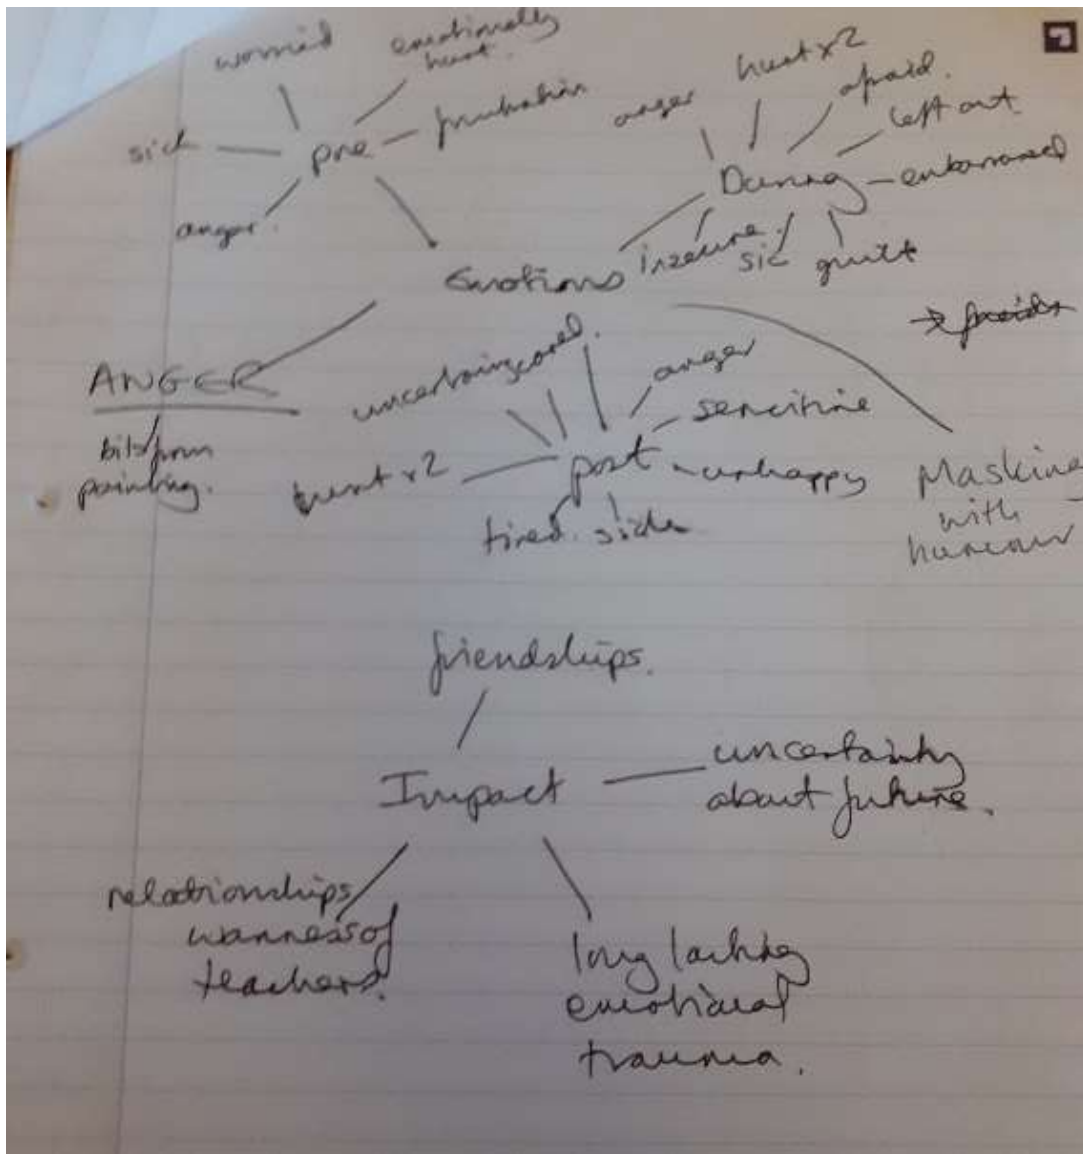 worried
emotionally
hurt.
frustration
sick
pre
anger.
hurt x2
afraid.
anger
left out
During
embarrassed
insecure.
sic
guilt
Emotions
ANGER
bits from
painting.
uncertain
scared.
anger
sensitive
hurt x2
post
unhappy
tired.
sick
Masking
with
humour
friendships.
Impact
uncertainty
about future.
relationships
wariness of
teachers.
long lasting
emotional
trauma.